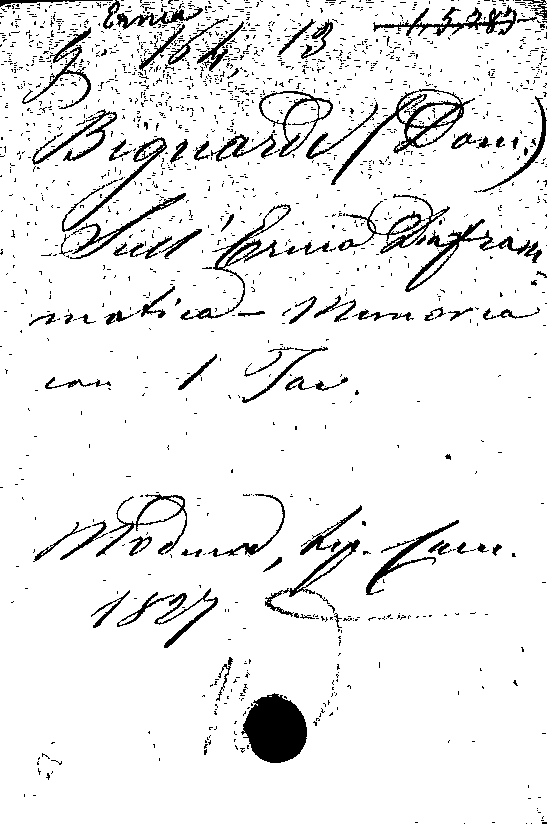 Ernia
164, 13 1,5,283
Bignardi (Dom.)
Sull' Ernia Diafram
matica - Memoria
con 1 Tav.
Modena, tip. Cam.
1827